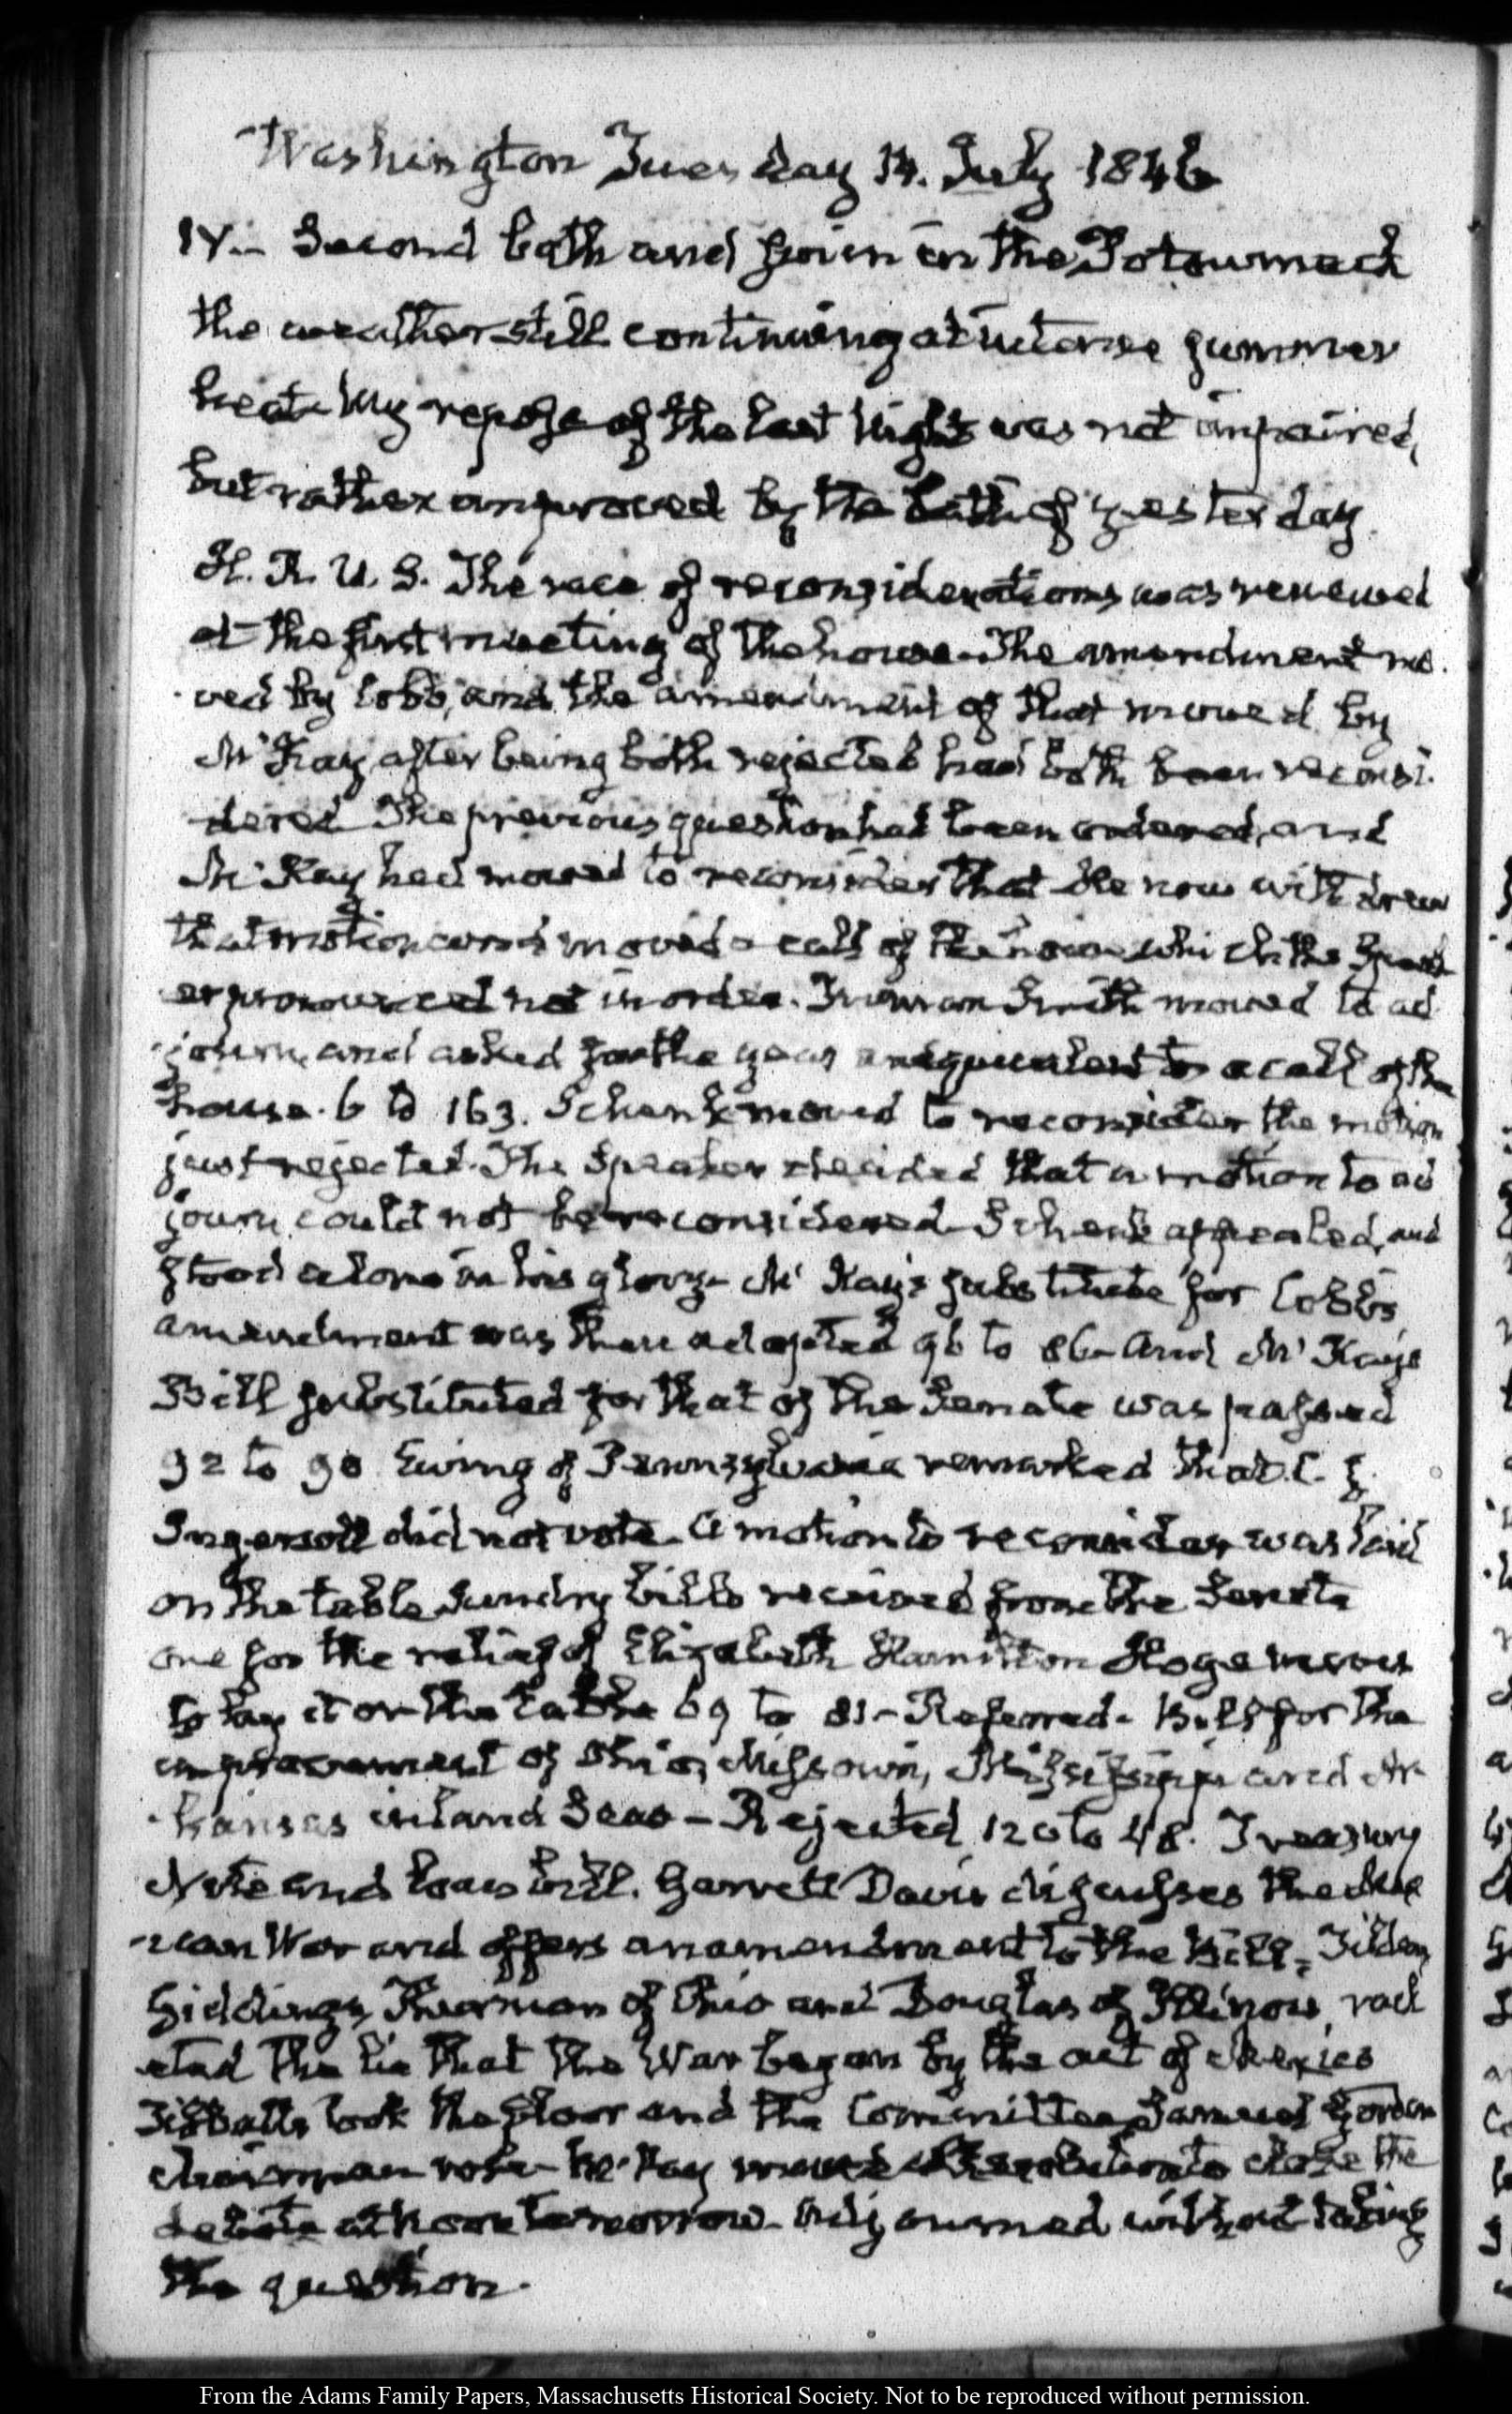 Washington Tuesday 14. July 1846
IV.- Second bath and swim in the Potowmack
the weather still continuing at intense summer
heat. My repose of the last Night was not impaired,
but rather improved by the bath of yesterday.
H. R. U. S. The race of reconsiderations was renewed
at the first meeting of the house. The amendment mo-
ved by Cobb, and the amendment of that moved by
Mc Kay after being both rejected had both been reconsi-
dered. The previous question had been ordered, and
Mc Kay had moved to reconsider that. He now withdrew
that motion and moved a call of the house which the Speak-
er pronounced not in order. Truman Smith moved to ad-
journ, and asked for the yeas equivalent to a call of the
house. 6 to 163. Schenk moved to reconsider the motion
just rejected. The Speaker decided that a motion to ad-
journ could not be reconsidered. Schenk appealed, and
stood alone in his glory. Mc Kay's substitute for Cobb's
amendment was then adopted 96 to 86. And Mc Kay's
Bill substituted for that of the Senate was passed
92 to 90 Ewing of Pennsylvania remarked that C. J.
Ingersoll did not vote. A motion to reconsider was laid
on the table. Sundry bills received from the Senate
one for the relief of Elizabeth Hamilton Hoge moves
to lay it on the table 69 to 81 - Referred. Bill for the
improvement of Ohio, Missouri, Mississippi and Ar-
kansas inland Seas - Rejected 120 to 48. Treasury
Note and loan bill. Garrett Davis discusses the Mex-
ican War and offers an amendment to the Bill. Tilden
Giddings, Thurman of Ohio and Douglas of Illinois,
the lie that the War began by the act of Mexico
Tibbatts took the floor and the Committee, Samuel Gordon
chairman rose. Mc Kay moved a Resolution to close the
debate at noon tomorrow. Adjourned without taking
the question.
From the Adams Family Papers, Massachusetts Historical Society. Not to be reproduced without permission.